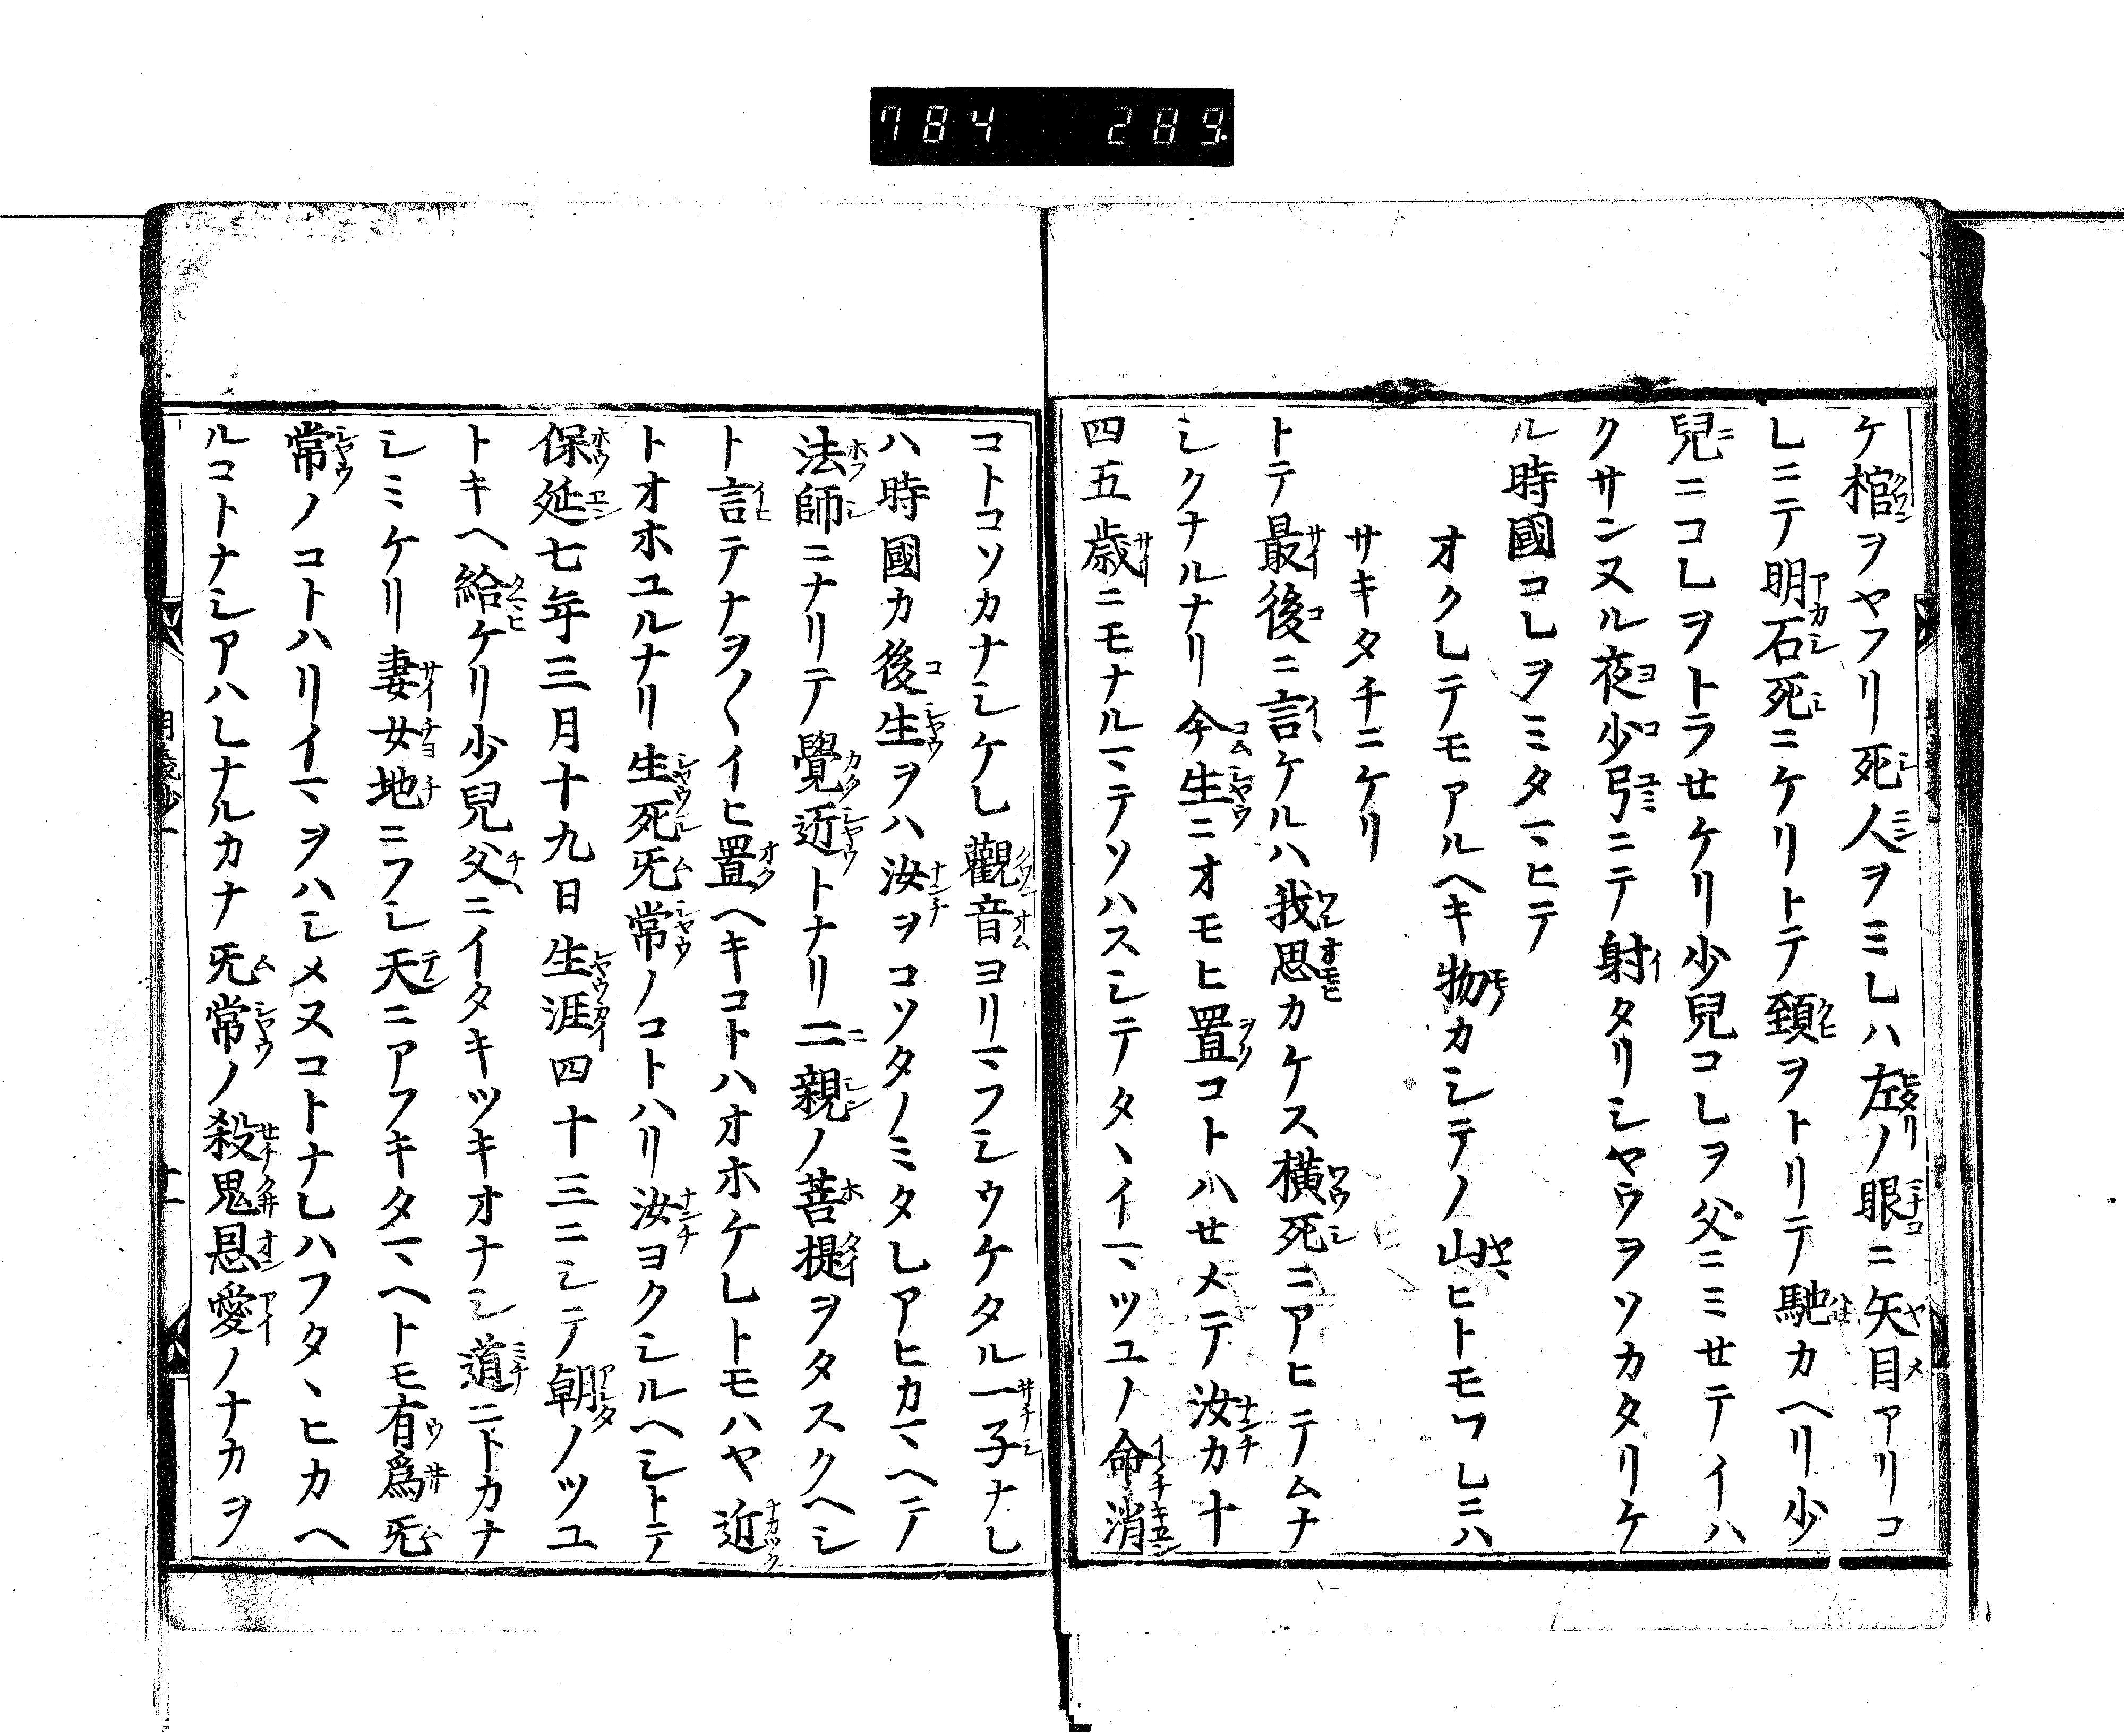 784 289
ケ棺ヲヤフリ死人ヲミレハ左ノ眼ニ矢目アリコ
レニテ明石死ニケリトテ頚ヲトリテ馳カヘリ少
兒ニコレヲトラセケリ少兒コレヲ父ニミセテイハ
クサンヌル夜少弓ニテ射タリシヤウヲソカタリケ
ル時國コレヲミタマヒテ
オクレテモアルヘキ物カシテノ山ヒトモワレニハ
サキタチニケリ
トテ最後ニ言ケルハ我思カケス横死ニアヒテムナ
シクナルナリ今生ニオモヒ置コトハセメテ汝カ十
四五歳ニモナルマテソハスシテタヽイマツユノ命消
コトコソカナシケレ觀音ヨリマフシウケタル一子ナレ
ハ時國カ後生ヲハ汝ヲコソタノミタレアヒカマヘテ
法師ニナリテ覺近トナリ二親ノ菩提ヲタスクヘシ
ト言テナヲ〱イヒ置ヘキコトハオホケレトモハヤ近
トオホユルナリ生死旡常ノコトハリ汝ヨクシルヘシトテ
保延七年三月十九日生涯四十三ニシテ朝ノツユ
トキヘ給ケリ少兒父ニイタキツキオナシ道ニトカナ
シミケリ妻女地ニフシ天ニアフキタマヘトモ有爲旡
常ノコトハリイマヲハシメヌコトナレハフタヽヒカヘ
ルコトナシアハレナルカナ旡常ノ殺鬼恩愛ノナカヲ